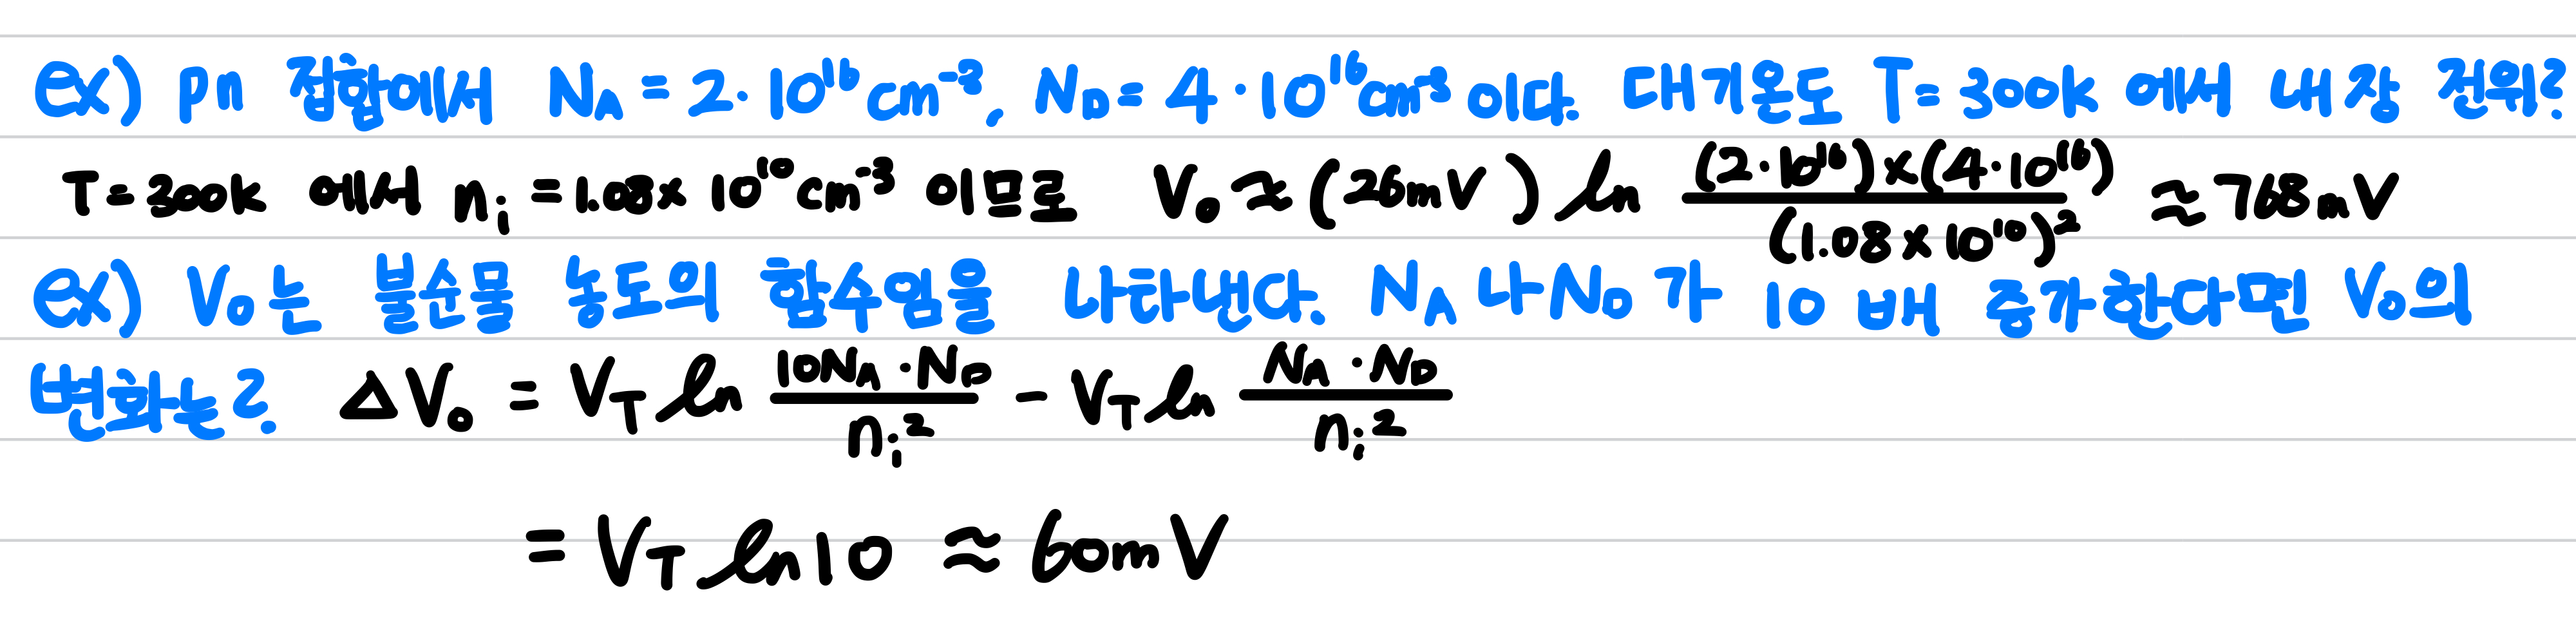 ex) pn 접합에서 N_A = 2·10^16 cm^-3, N_D = 4·10^16 cm^-3 이다. 대기온도 T=300k 에서 내장 전위?
T=300k 에서 n_i = 1.08×10^10 cm^-3 이므로 V_0 ≈ (26mV) ln (2·10^16)×(4·10^16) / (1.08×10^10)^2 ≈ 768mV
ex) V_0는 불순물 농도의 함수임을 나타낸다. N_A 나 N_D 가 10 배 증가한다면 V_0의
변화는? ΔV_0 = V_T ln 10N_A·N_D / n_i^2 - V_T ln N_A·N_D / n_i^2
= V_T ln10 ≈ 60mV